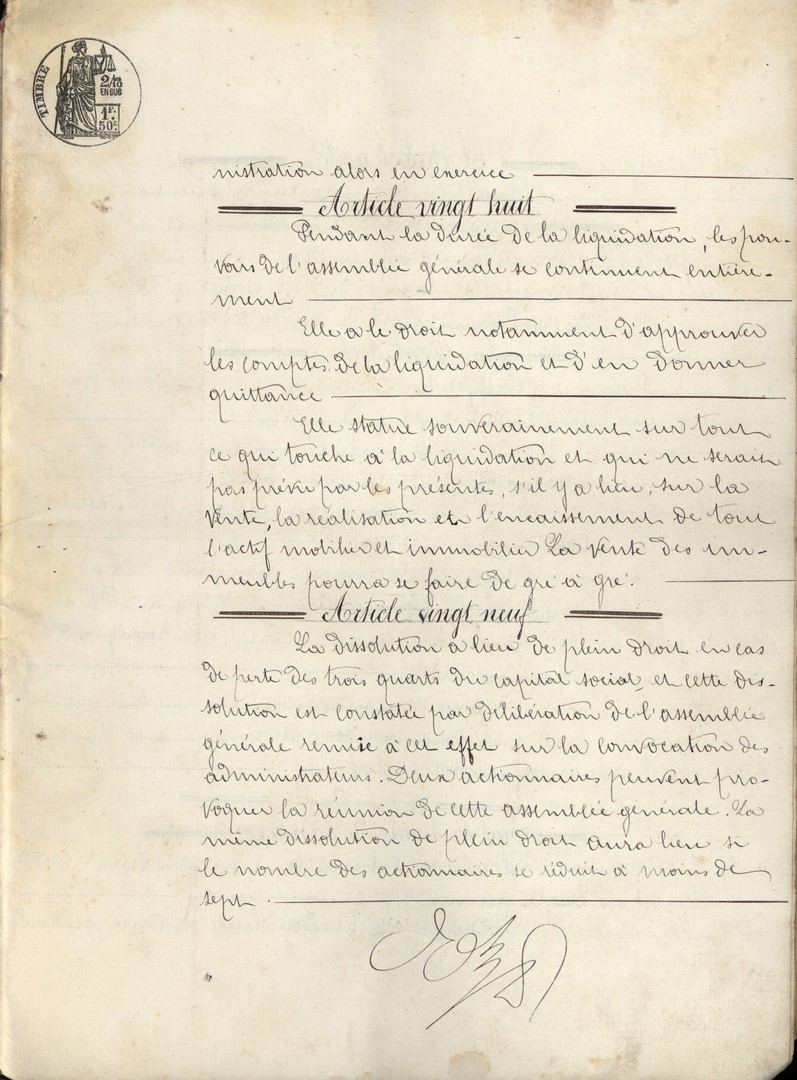 TIMBRE
2/10
EN SUS
1F.
50c.
nistration alors en exercice
Article vingt huit
Pendant la durée de la liquidation, les pou-
voirs de l'assemblée générale se continuent entière-
ment
Elle a le droit notamment d'approuver
les comptes de la liquidation et d'en donner
quittance
Elle statue souverainement sur tout
ce qui touche à la liquidation et qui ne serait
pas prévu par les présentes, s'il y a lieu, sur la
vente, la réalisation et l'encaissement de tout
l'actif mobilier et immobilier La vente des im-
meubles pourra se faire de gré à gré.
Article vingt neuf
La dissolution a lieu de plein droit en cas
de perte des trois quarts du capital social, et cette dis-
solution est constatée par délibération de l'assemblée
générale remise à cet effet sur la convocation des
administrateurs. Deux actionnaires peuvent pro-
voquer la réunion de cette assemblée générale. La
même dissolution de plein droit aura lieu si
le nombre des actionnaires se réduit à moins de
sept.